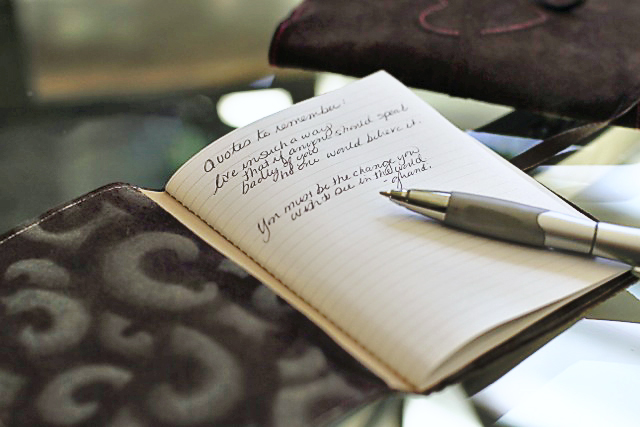 Quotes to remember:
Live in such a way
that if anyone should speak
badly of you
no one would believe it.
You must be the change you
wish to see in the world